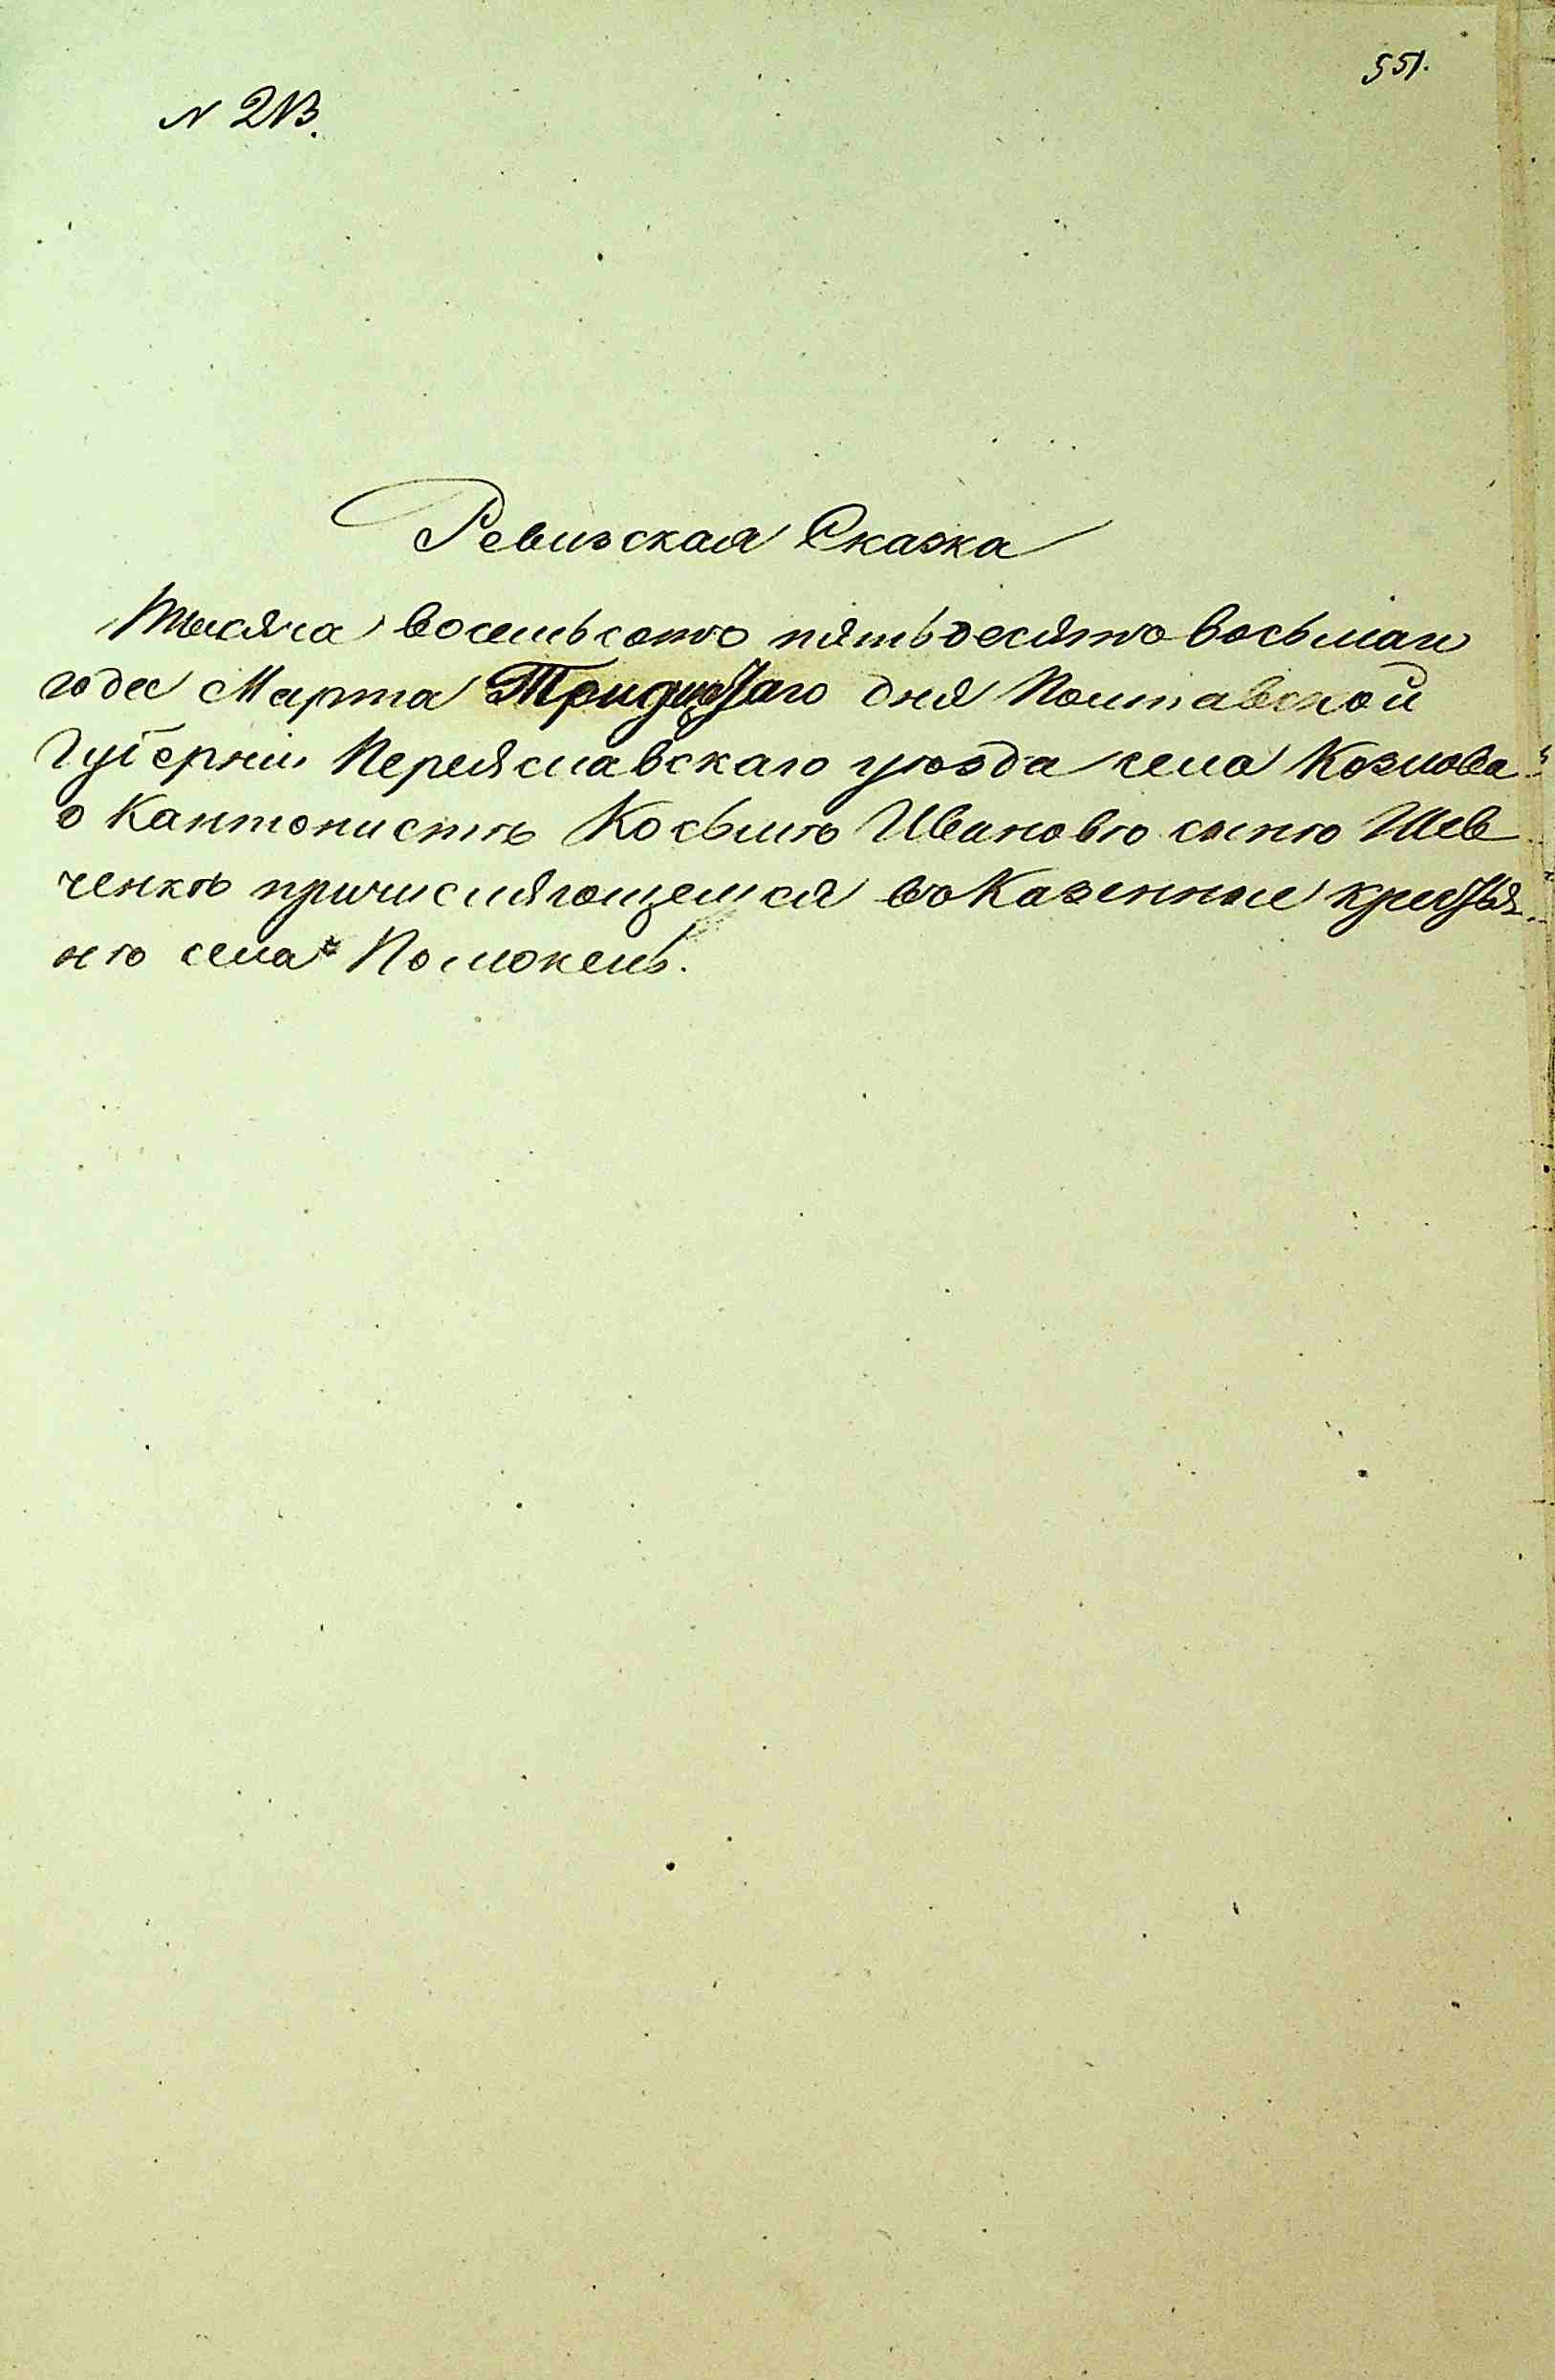 551.
N 213.
Ревизская Сказка
Тысяча восемьсотъ пятьдесятъ восьмаго
года Марта Тридцатаго дня Полтавской
Губерніи Переяславскаго уѣзда села Козлова
о Кантонистѣ Косьмѣ Ивановѣ сынѣ Шев
ченкѣ причисляющемся въ Казенные крестья
нѣ села Помокель.